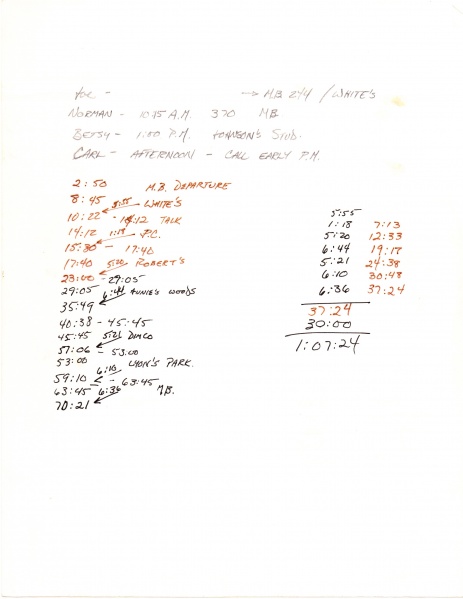 Joe - → M.B 244 / WHITE'S
NORMAN - 10:45 A.M. 370 M.B.
BETSY - 1:00 P.M. JOHNSON'S STUD.
CARL - AFTERNOON - CALL EARLY P.M.
2:50 M.B. DEPARTURE
8:45 5:55 WHITE'S
10:22 - 14:12 TALK
14:12 1:18 P.C.
15:30 - 17:40
17:40 5:20 ROBERT'S
23:00 - 29:05
29:05 6:44 AUNIE'S WOODS
35:49
40:38 - 45:45
45:45 5:21 DIMCO
57:06 - 53:00
53:00 6:10 LYON'S PARK.
59:10 - 63:45
63:45 6:36 M.B.
70:21
5:55
1:18 7:13
5:20 12:33
6:44 19:17
5:21 24:38
6:10 30:48
6:36 37:24
37:24
30:00
1:07:24